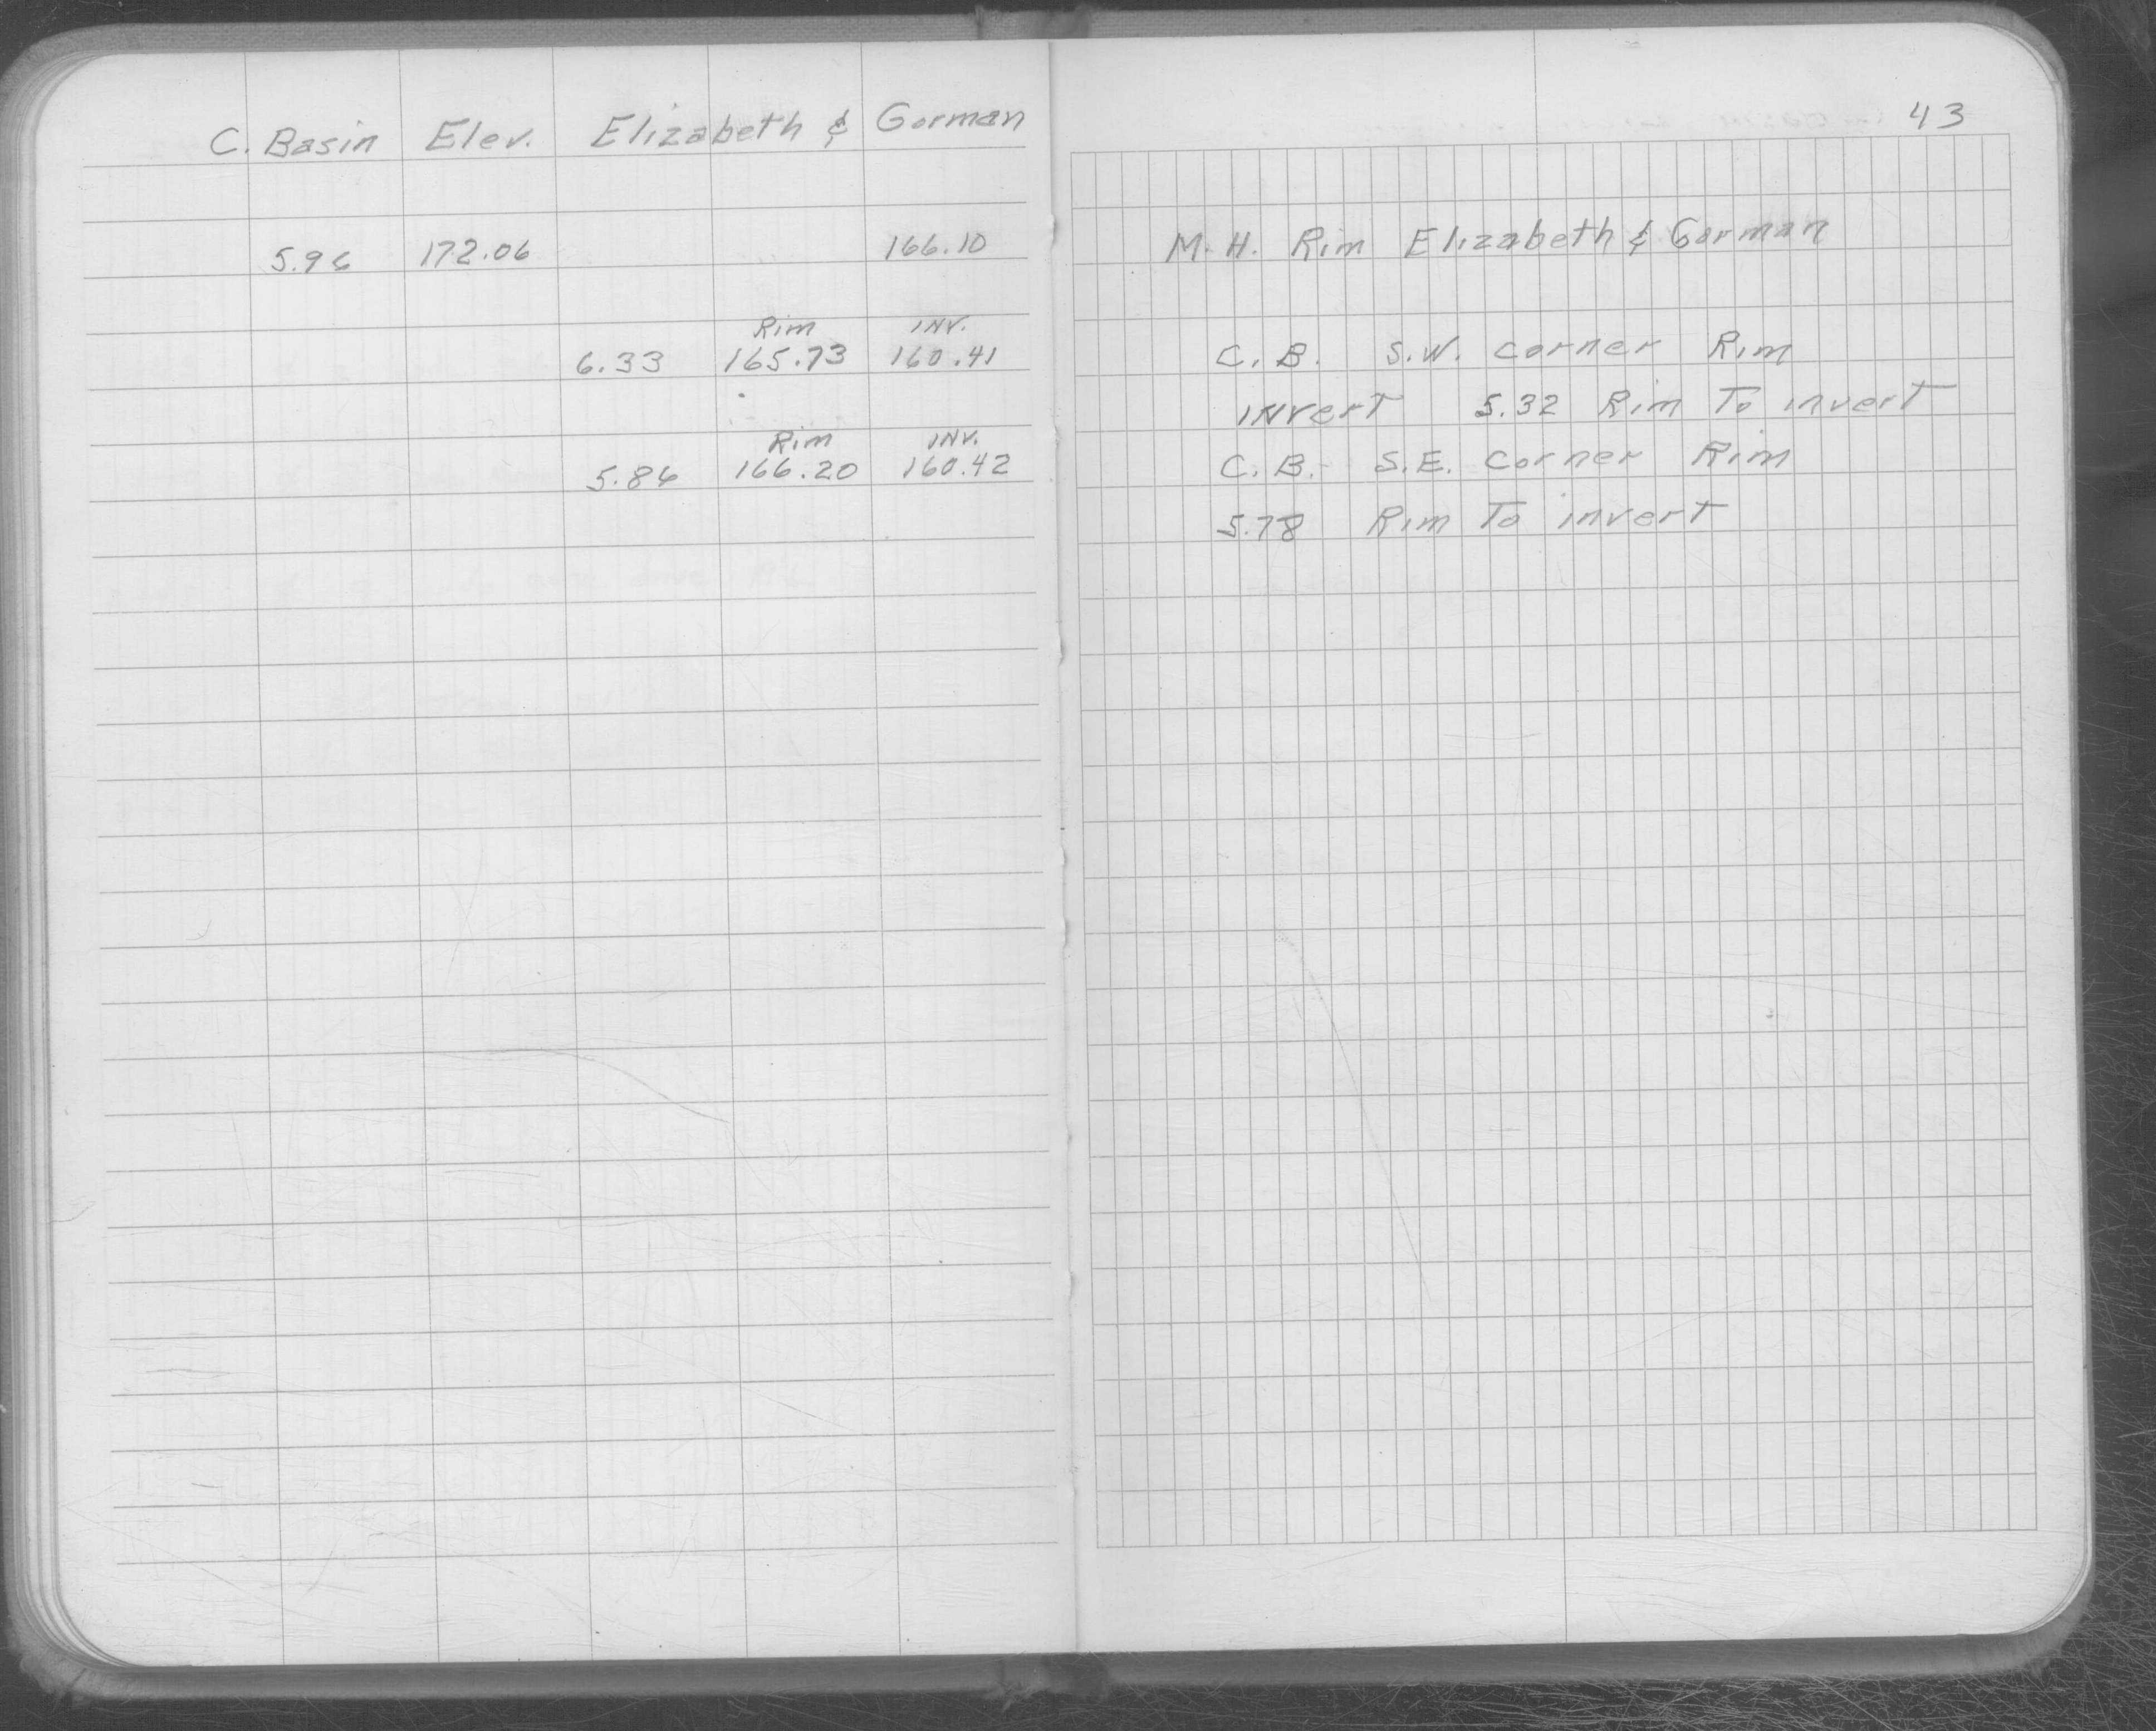 C. Basin Elev. Elizabeth & Gorman
5.96 172.06 166.10
Rim INV.
6.33 165.73 160.41
Rim INV.
5.86 166.20 160.42
43
M.H. Rim Elizabeth & Gorman
C.B. S.W. corner Rim
INvert 5.32 Rim To invert
C.B. S.E. corner Rim
5.78 Rim To invert